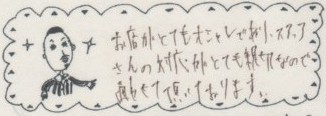 お店がとてもオシャレであり、スタッフ
さんの対応がとても親切なので
来させて頂いております。